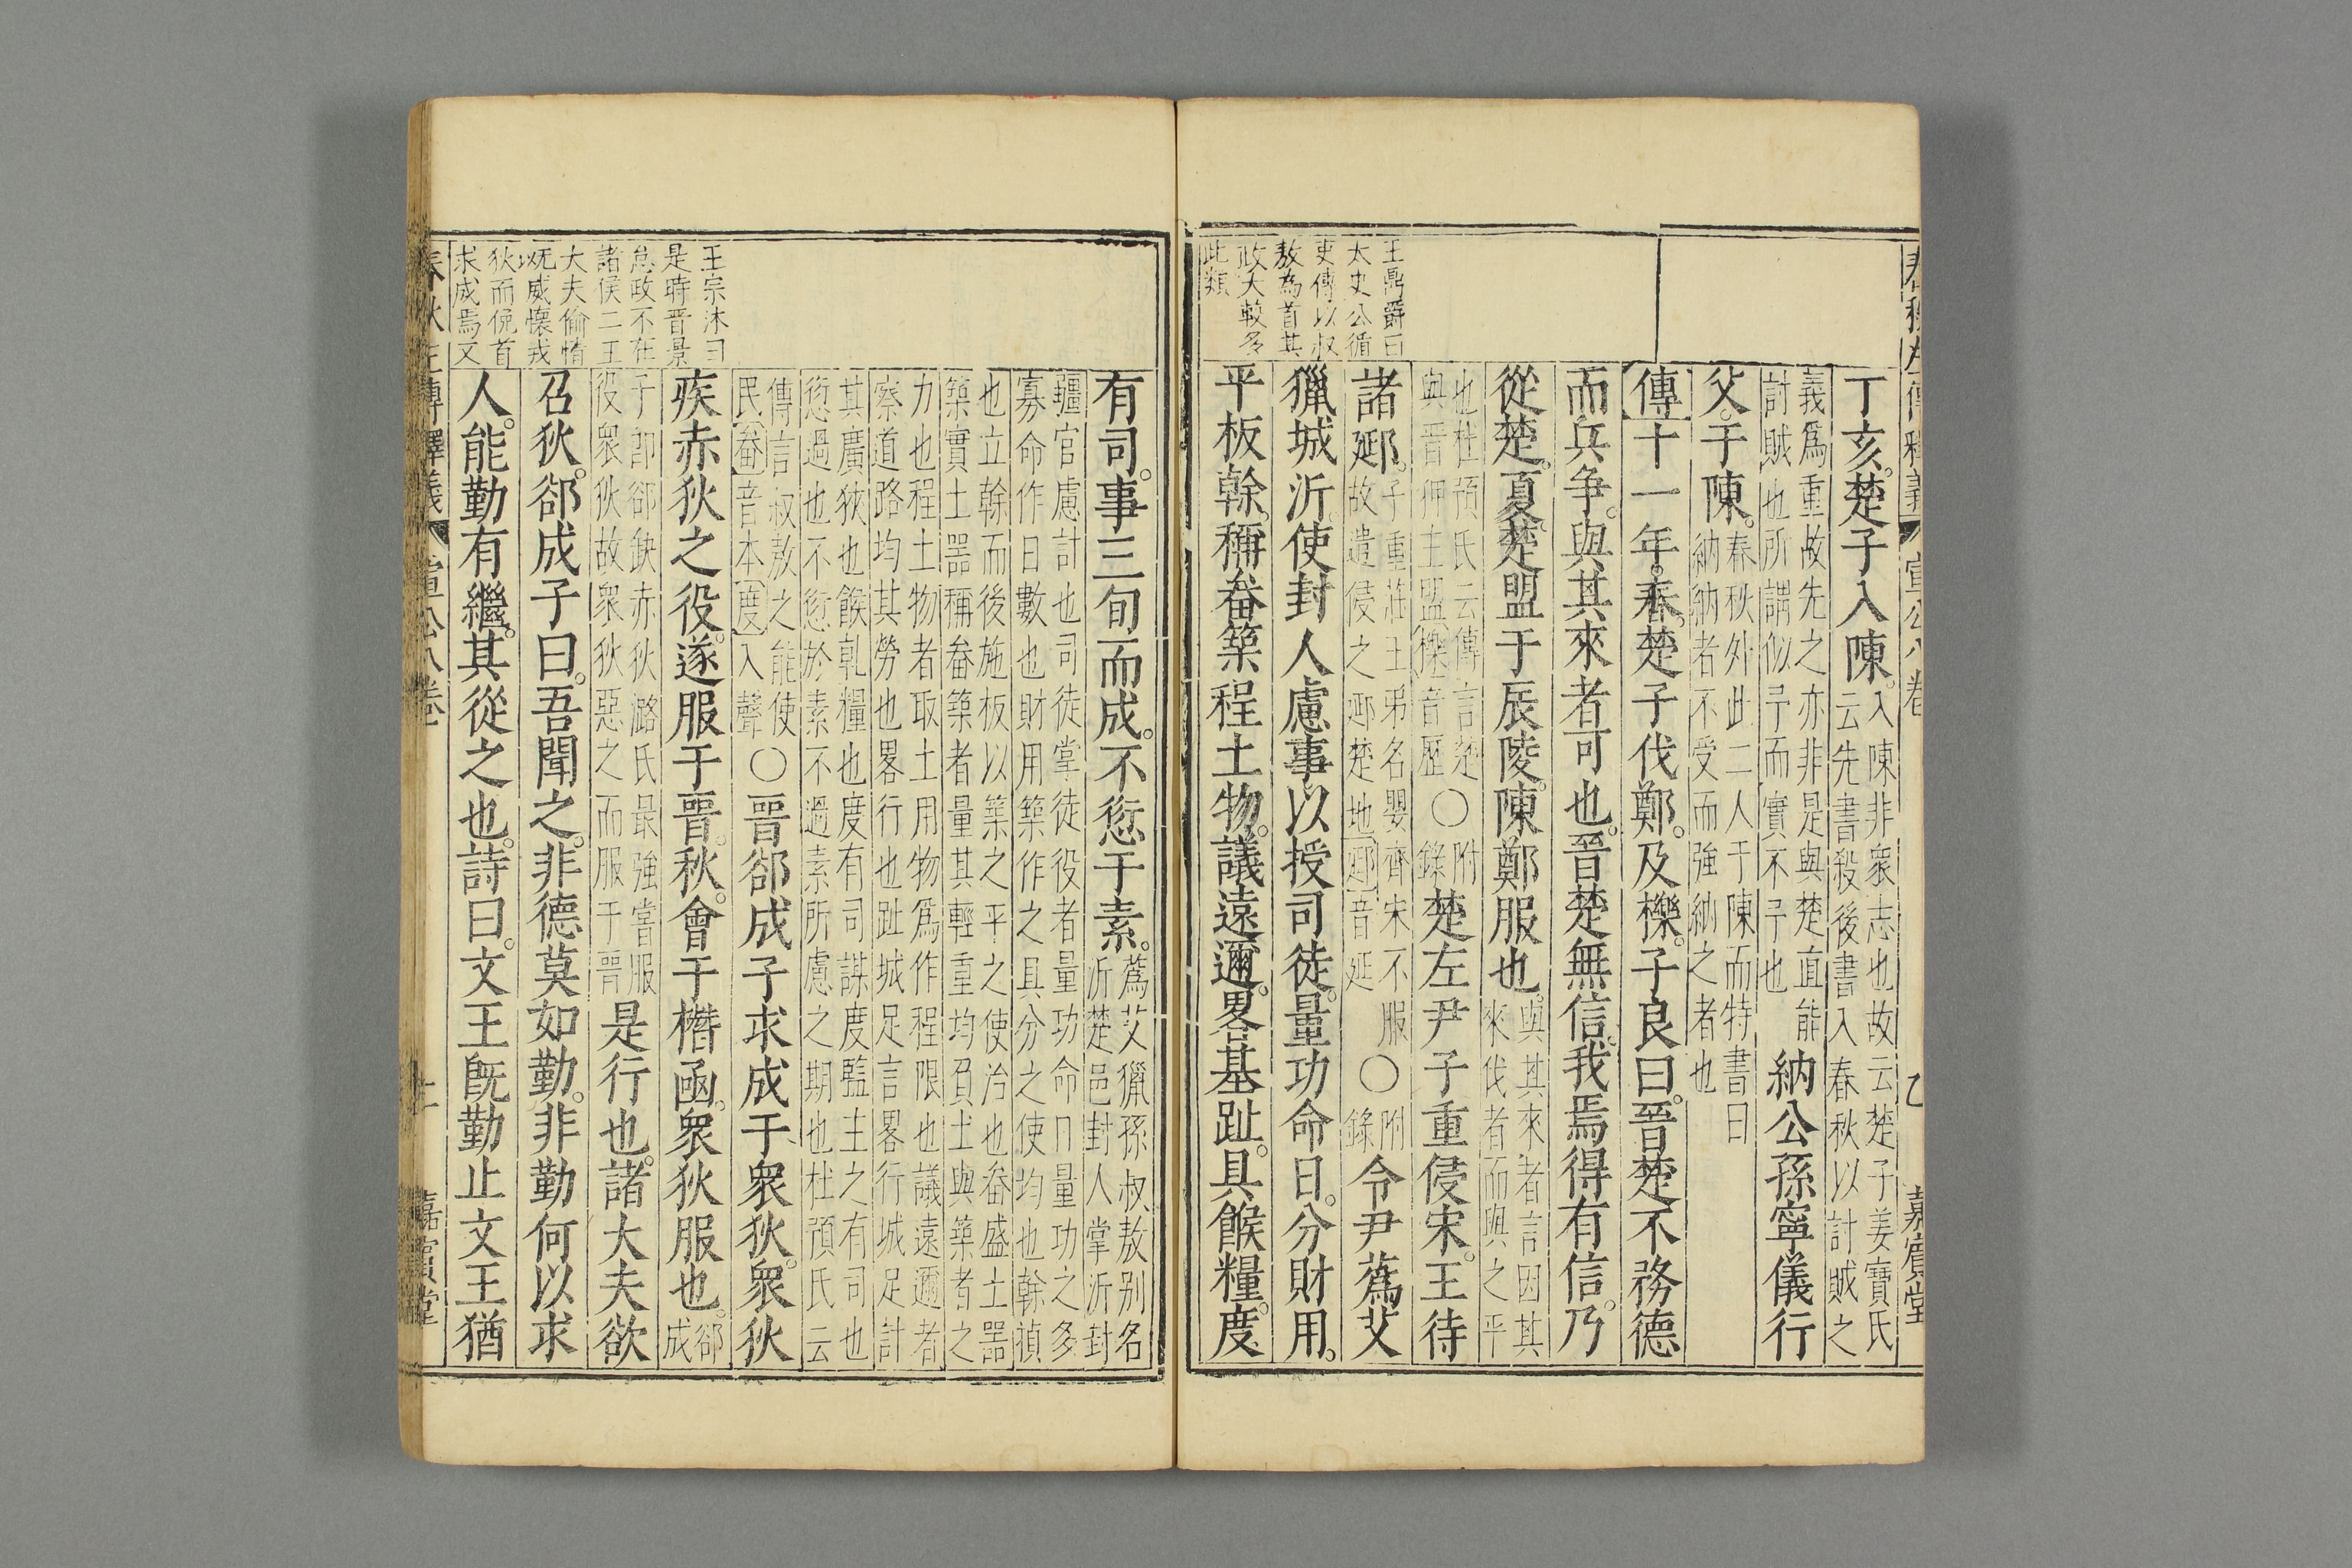 春秋左傳釋義 宣公八卷 嘉賓堂
丁亥楚子入陳入陳非衆志也故云楚子姜寶氏
云先書殺後書入春秋以討賊之
義爲重故先之亦非是與楚直能
討賊也所謂似予而實不予也
納公孫寧儀行
父于陳春秋外此二人于陳而特書曰
納納者不受而強納之者也
傳十一年春楚子伐鄭及櫟子良曰晉楚不務德
而兵争與其來者可也晉楚無信我焉得有信乃
從楚夏楚盟于辰陵陳鄭服也與其來者言因其
來伐者而與之平
也杜預氏云傳言楚
與晉狎主盟櫟音歷〇附
錄楚左尹子重侵宋王待
諸郔子重莊王弟名嬰齊宋不服
故遣侵之郔楚地郔音延〇附
錄令尹蒍艾
獵城沂使封人慮事以授司徒量功命日分財用
平板榦稱畚築程土物議遠邇畧基趾具餱糧度
王鼎爵曰
太史公循
吏傳以叔
敖為首其
政大較多
此類
有司事三旬而成不愆于素蒍艾獵孫叔敖别名
沂楚邑封人掌沂封
疆官慮計也司徒掌徒役者量功命日量功之多
寡命作日數也財用築作之具分之使均也榦楨
也立榦而後施板以築之平之使治也畚盛土器
築實土器稱畚築者量其輕重均負土與築者之
力也程土物者取土用物爲作程限也議遠邇者
察道路均其勞也畧行也趾城足言畧行城足計
其廣狹也餱乹糧也度有司謀度監主之有司也
愆過也不愆於素不過素所慮之期也杜預氏云
傳言叔敖之能使
民畚音本度入聲〇晉郤成子求成于衆狄衆狄
疾赤狄之役遂服于晉秋會于欑函衆狄服也郤
成
子即郤缺赤狄潞氏最強當服
役衆狄故衆狄惡之而服于晉
是行也諸大夫欲
召狄郤成子曰吾聞之非德莫如勤非勤何以求
人能勤有繼其從之也詩曰文王旣勤止文王猶
王宗沐曰
是時晉景
怠政不在
諸侯二五
大夫偷惰
旣威懷戎
狄而俛首
求成焉文
春秋左傳釋義 宣公八卷 嘉賓堂